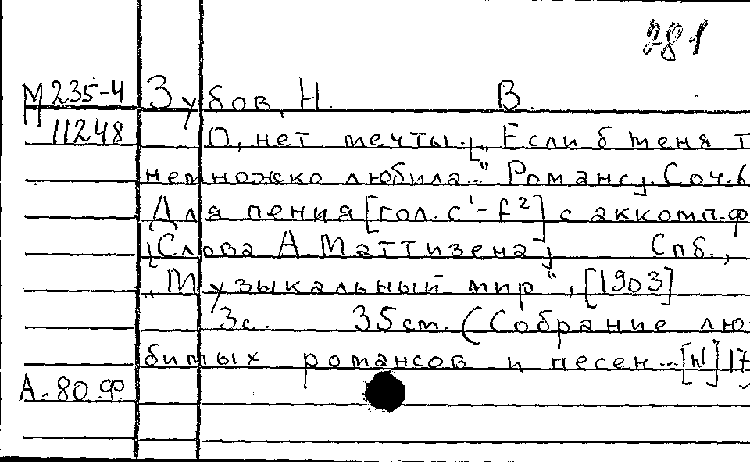 781
М 235-4 Зубов, Н. В.
11248 О, нет мечты. [„Если б меня т
немножко любила..." Романс]. Соч. 6
Для пения [гол. c¹-f²] с аккомп. ф
[Слова А. Маттизена] Спб.,
„Музыкальный мир", [1903]
3 с. 35 см. (Собрание лю
бимых романсов и песен...[N] 17
А.-80 Ф